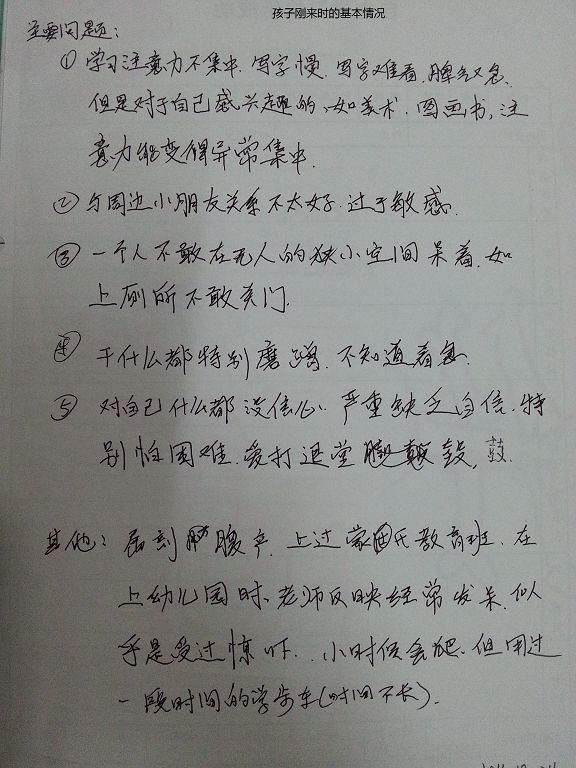 孩子刚来时的基本情况
主要问题：
① 学习注意力不集中. 写字慢. 写字难看. 脾气又急.
但是对于自己感兴趣的、如美术. 图画书, 注
意力能变得异常集中.
② 与周边小朋友关系不太好. 过于敏感.
③ 一个人不敢在无人的狭小空间呆着. 如
上厕所不敢关门.
④ 干什么都特别磨蹭. 不知道着急.
⑤ 对自己什么都没信心. 严重缺乏自信. 特
别怕困难. 爱打退堂 鼓.
其他： 属剖腹产. 上过蒙氏教育班. 在
上幼儿园时. 老师反映经常发呆. 似
乎是受过惊吓. 小时候会爬. 但用过
一段时间的学步车(时间不长).